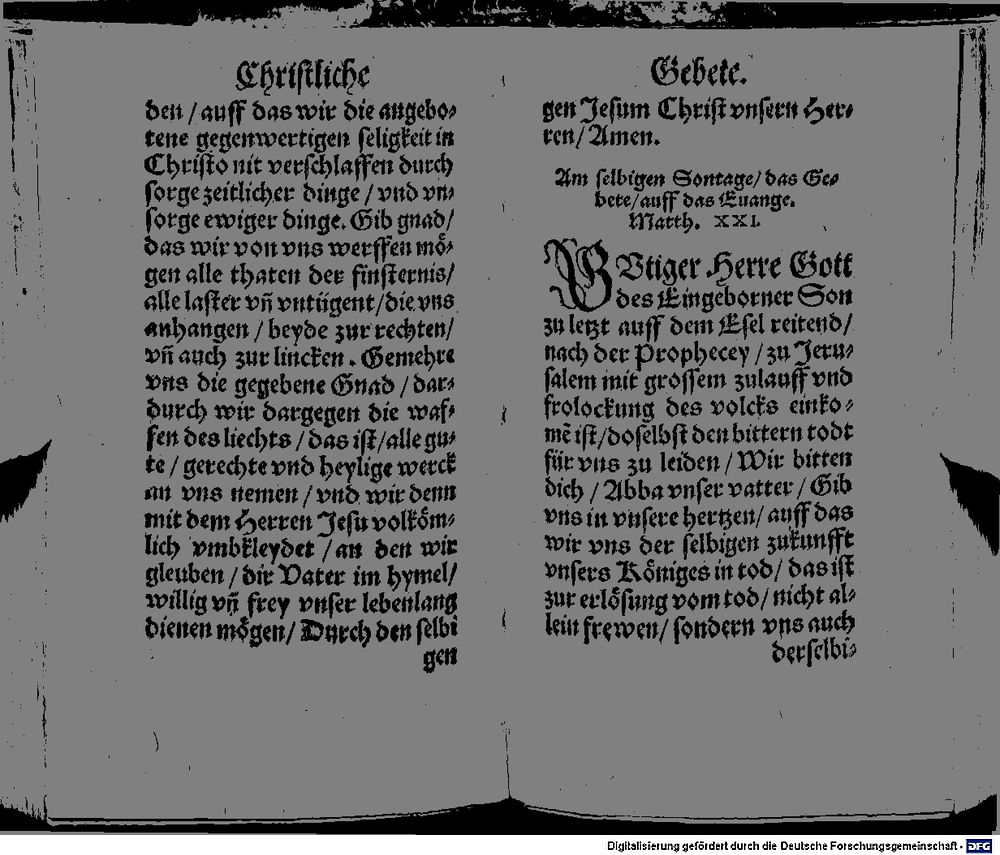 Christliche
den / auff das wir die angebo⸗
tene gegenwertigen seligkeit in
Christo nit verschlaffen durch
sorge zeitlicher dinge / vnd vn⸗
sorge ewiger dinge. Gib gnad/
das wir von vns werffen mö⸗
gen alle thaten der finsternis/
alle laster vñ vntügent/die vns
anhangen / beyde zur rechten/
vñ auch zur lincken. Gemehre
vns die gegebene Gnad / dar⸗
durch wir dargegen die waf⸗
fen des liechts / das ist/alle gu⸗
te / gerechte vnd heylige werck
an vns nemen / vnd wir denn
mit dem Herren Jesu volköm⸗
lich vmbkleydet / an den wir
gleuben / dir Vater im hymel/
willig vñ frey vnser lebenlang
dienen mögen/ Durch den selbi
gen
Gebete.
gen Jesum Christ vnsern Her⸗
ren/Amen.
Am selbigen Sontage/das Ge⸗
bete/auff das Euange.
Matth. XXI.
GVtiger Herre Gott
des Eingeborner Son
zu letzt auff dem Esel reitend/
nach der Prophecey / zu Jeru⸗
salem mit grossem zulauff vnd
frolockung des volcks einko⸗
mē ist/doselbst den bittern todt
für vns zu leiden / Wir bitten
dich / Abba vnser vatter / Gib
vns in vnsere hertzen/ auff das
wir vns der selbigen zukunfft
vnsers Königes in tod/ das ist
zur erlösung vom tod/ nicht al⸗
lein frewen/ sondern vns auch
derselbi⸗
Digitalisierung gefördert durch die Deutsche Forschungsgemeinschaft - DFG